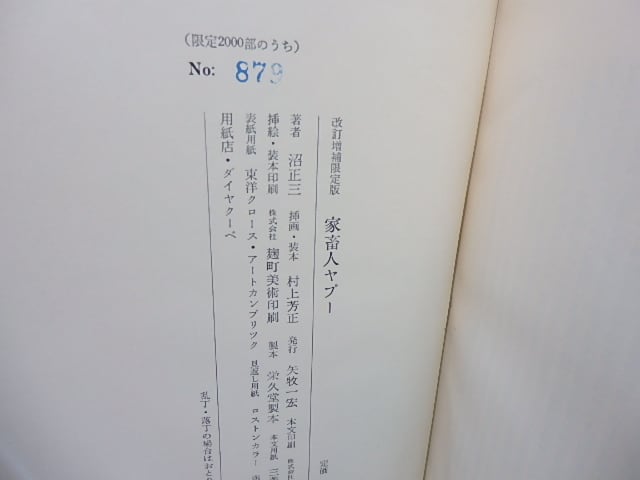 (限定2000部のうち)
No: 879
改訂増補限定版 家畜人ヤプー 定価
著者 沼正三 挿画・装本 村上芳正 発行 矢牧一宏 本文印刷 株式会社
挿絵・装本印刷 株式会社 麹町美術印刷 製本 栄久堂製本 本文用紙 三菱
表紙用紙 東洋クロース・アートカンブリック 見返し用紙 ロストンカラー
用紙店・ダイヤクーペ
乱丁・落丁の場合はおと